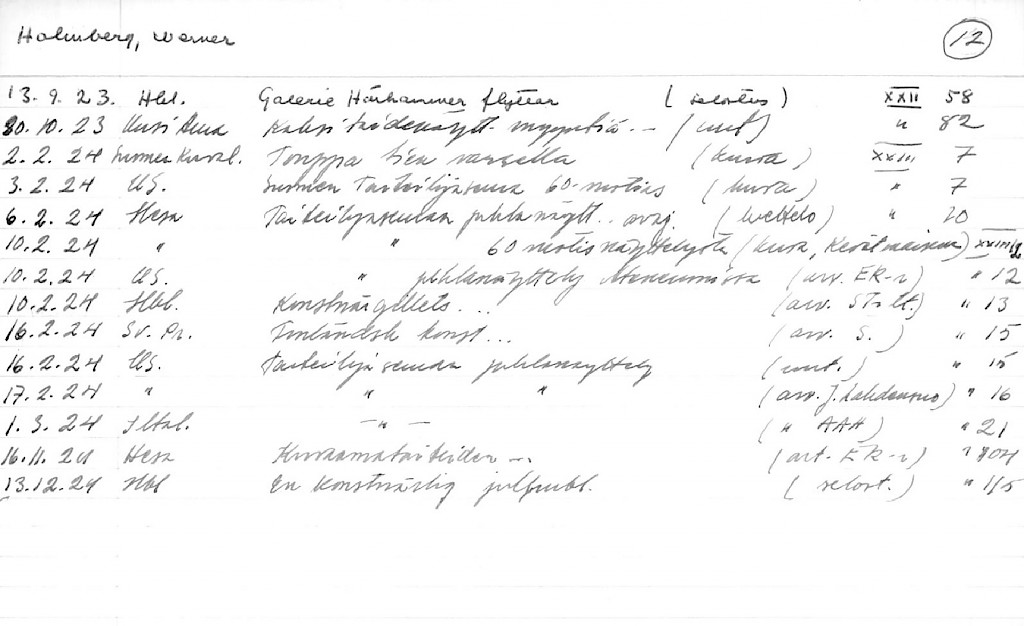 Holmberg, Werner 12
13. 9. 23. Hbl. Galerie Hörhammer flyttar (selostus) XXII 58
30. 10. 23 Uusi Suomi Kaksi taidenäytt. myyntiä. — (uut) " 82
2. 2. 24 Suomen Kuval. Torppa tien varrella (kuva) XXIII 7
3. 2. 24 US. Suomen Taiteilijaseura 60-vuotias (kuva) " 7
6. 2. 24 Hesa Taiteilijaseuran juhlanäytt.. avaj. (luettelo) " 20
10. 2. 24 " " 60 vuotisnäyttelystä (kuva, Kesätmaisema) XXIII
10. 2. 24 US. " juhlanäyttely Ateneumissa (arv. ER-r) " 12
10. 2. 24 Hbl. Konstnärgillets... (arv. ST-lt.) " 13
16. 2. 24 Sv. Pr. Finländsk konst... (arv. S.) " 15
16. 2. 24 US. Taiteilijaseuran juhlanäyttely (uut.) " 15
17. 2. 24 " " " (arv. J. Lahdensuo) " 16
1. 3. 24 Iltal. —"— (" AAH) " 21
16. 11. 24 Hesa Kuvaamataiteiden — (art. ER-r) " 104
13. 12. 24 Hbl En konstnärlig julpubl. (selost.) " 115